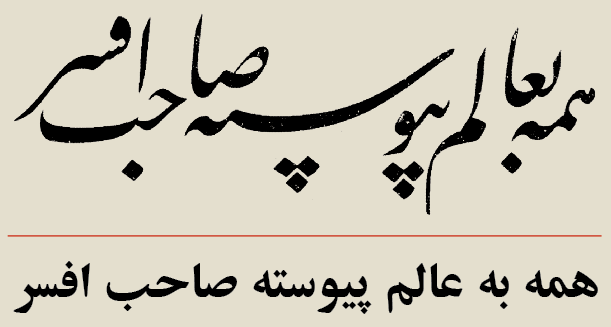 همه بعالم پیوسته صاحب افسر
همه به عالم پیوسته صاحب افسر